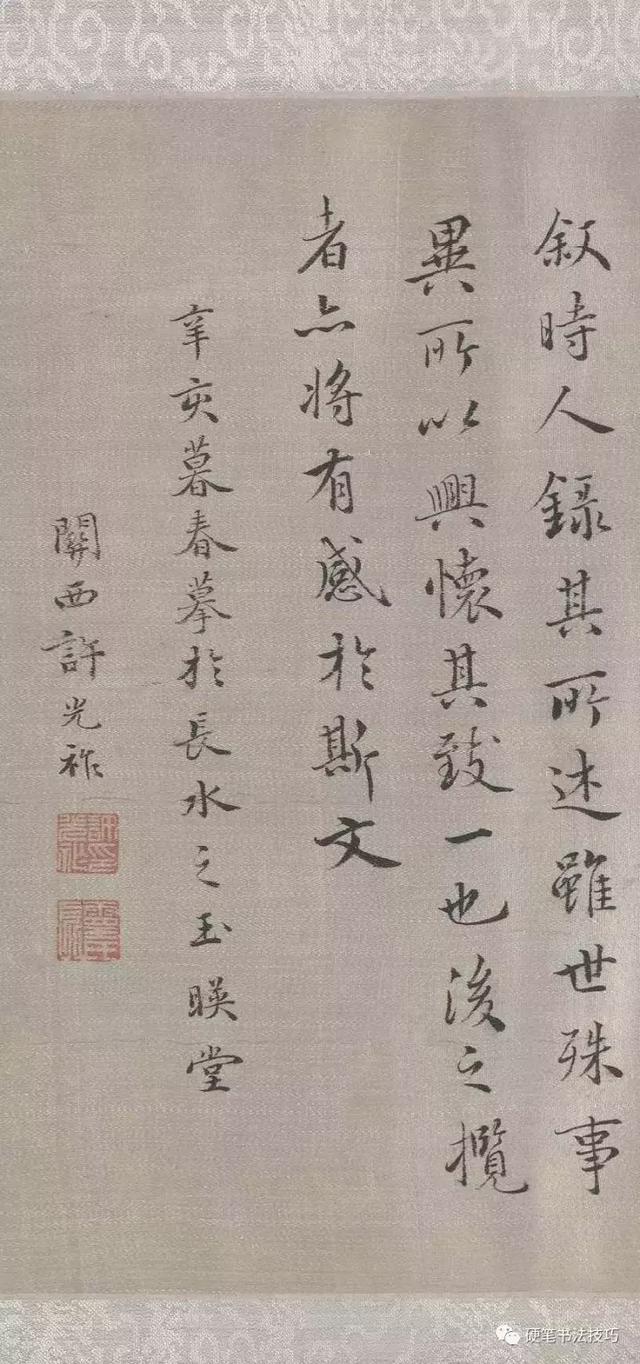 叙時人錄其所述雖世殊事
異所以興懷其致一也後之攬
者亦將有感於斯文
辛亥暮春摹於長水之玉暎堂
關西許光祚
硬笔书法技巧